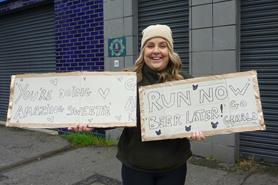 YOU'RE DOING
AMAZING SWEETIE
RUN NOW
BEER LATER! GO
CHARLIE